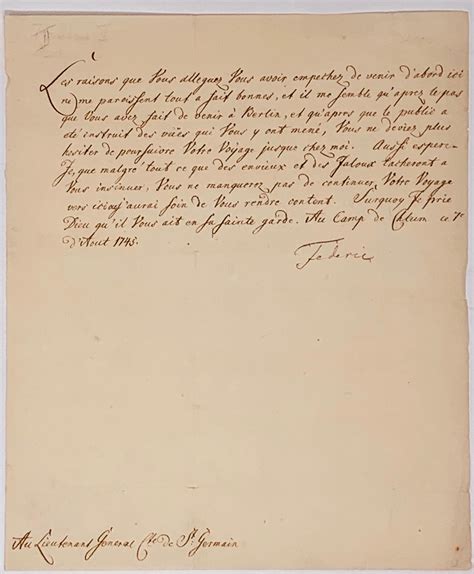 Les raisons que Vous alleguez Vous avoir empechez de venir d'abord ici
ne me paroissent tout a fait bonnes, et il me semble qu'apres le pas
que Vous avez fait de venir à Berlin, et qu'apres que le public a
été instruit des vuües qui Vous y ont mené, Vous ne deviez plus
hesiter de poursuivre Votre Voyage jusque chez moi. Aussi espere-
Je, que malgré tout ce que des envieux et des Jaloux tacheront a
Vous insinuer, Vous ne manquerez pas de continuer Votre Voyage
vers ici; j'aurai soin de Vous rendre content. Surquoy Je prie
Dieu qu'il Vous ait en sa sainte garde. Au Camp de ce
d'Aout 1745.
Federic
Au Lieutenant Général Cte de St. Germain